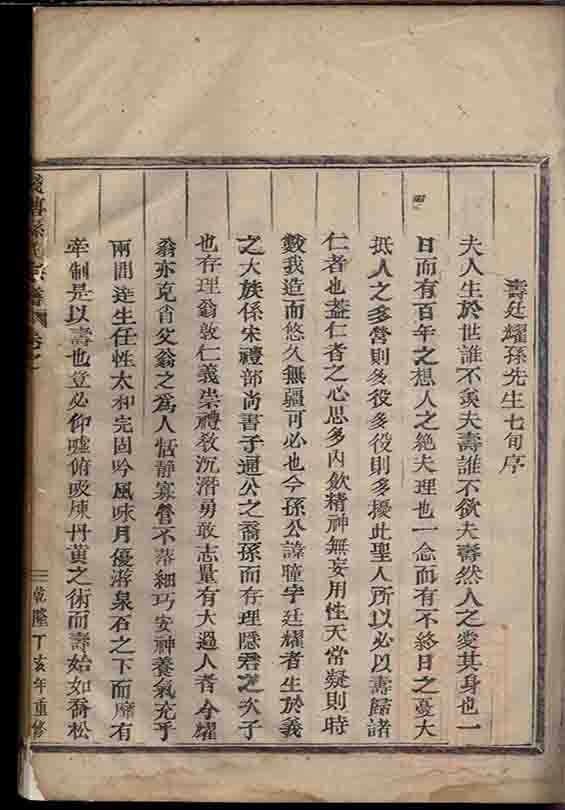 壽廷耀孫先生七旬序
夫人生於世誰不羡夫壽誰不欲夫壽然人之愛其身也一
日而有百年之想人之絶夫理也一念而有不終日之憂大
抵人之多營則多役多役則多擾此聖人所以必以壽歸諸
仁者也盖仁者之心思多內斂精神無妄用性天常凝則時
數我造而悠久無疆可必也今孫公諱瞳字廷耀者生於義
之大族係宋禮部尚書子通公之裔孫而存理隱君之次子
也存理翁敦仁義崇禮教沉潛勇敢志量有大過人者今耀
翁亦克肖父翁之爲人恬靜寡營不落細巧安神養氣充乎
兩間達生任性太和完固吟風咏月優游泉石之下而靡有
牽制是以壽也豈必仰噓俯吸煉丹黄之術而壽始如喬松
孫氏宗譜
乾隆丁亥年重修